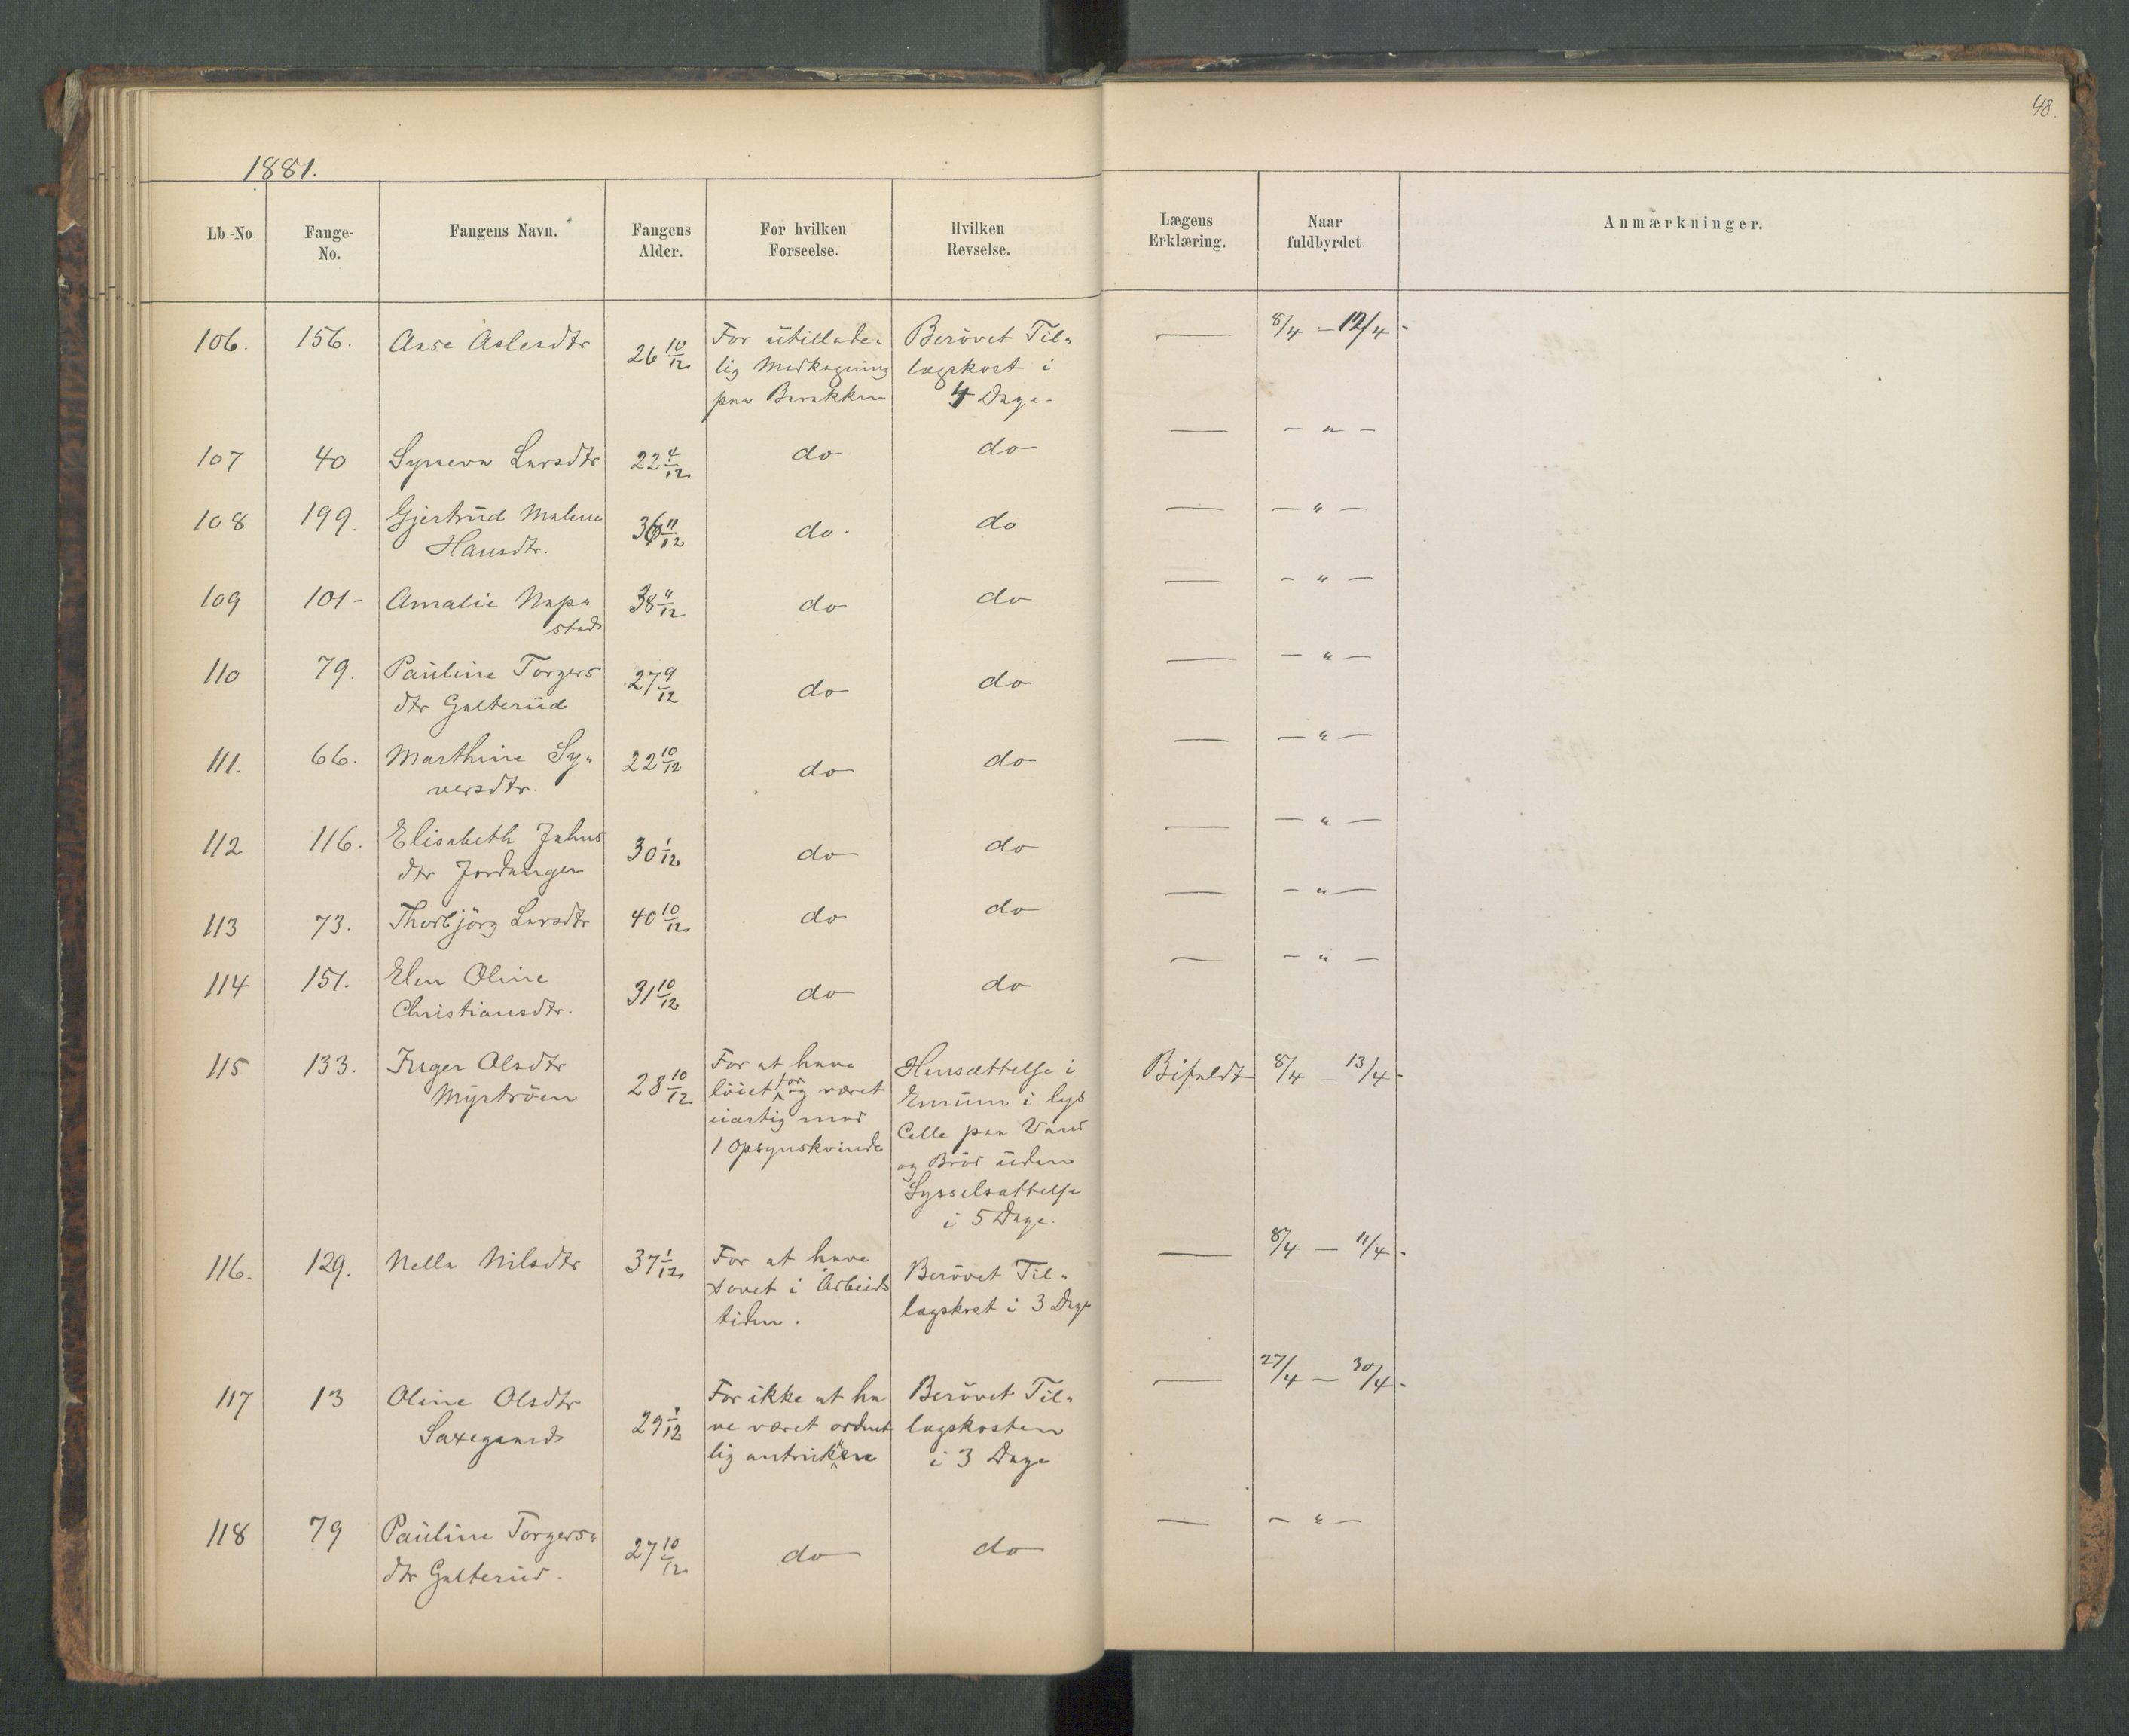 48.
1881.
Lb.-No. Fange-No. Fangens Navn. Fangens Alder. For hvilken Forseelse. Hvilken Revselse. Lægens Erklæring. Naar fuldbyrdet. Anmærkninger.
106. 156. Aase Aslesdtr 26 10/12 For utillade= Berövet Til= — 8/4 – 12/4.
lig Madkogning lægskost i
paa Barakken 4 Dage.
107 40 Syneva Larsdtr 22 4/12 do do — – " –
108 199. Gjertrud Malene 36 11/12 do. do — – " –
Hansdtr.
109 101- Amalie Nap= 38 11/12 do do — – " –
stad
110 79. Pauline Torgers 27 9/12 do do — – " –
dtr Galterud
111. 66. Marthine Sy= 22 10/12 do do — – " –
versdtr.
112 116. Elisabeth Johns 30 1/12 do do — – " –
dtr Jordanger
113 73. Thorbjörg Larsdtr 40 10/12 do do — – " –
114 151. Elen Oline 31 10/12 do do — – " –
Christiansdtr.
115 133. Inger Olsdtr 28 10/12 For at have Hensættelse i Bifaldt 8/4 – 13/4.
Myströen löiet for og været Enrum i lys
uartig mod Celle paa Vand
1 Opsynskvinde og Bröd uden
Sysselsættelse
i 5 Dage.
116. 129. Nella Nilsdtr 37 1/12 For at have Berövet Til= — 8/4 – 11/4.
sovet i Arbeids lægskost i 3 Dage
tiden.
117 13 Oline Olsdtr 29 1/12 For ikke at ha Berövet Til= — 27/4 – 30/4.
Saxegaard ve været ordent lægskosten
lig antrukken i 3 Dage
118 79 Pauline Torgers= 27 10/12 do do — – " –
dtr Galterud.